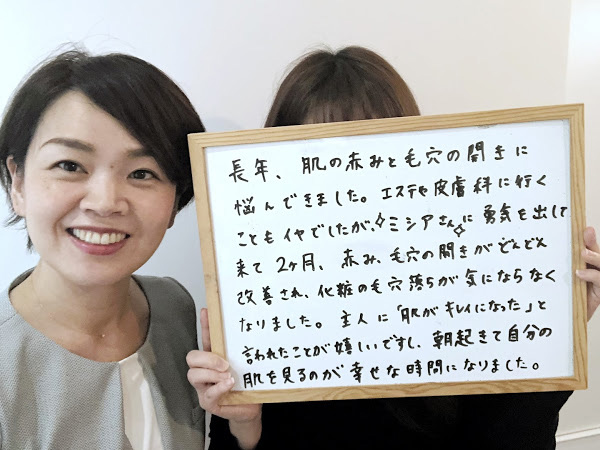 長年、肌の赤みと毛穴の開きに
悩んできました。エステや皮膚科に行く
こともイヤでしたが、✧ミシアさん✧に勇気を出して
来て2ヶ月、赤み、毛穴の開きがどんどん
改善され、化粧の毛穴落ちが気にならなく
なりました。主人に「肌がキレイになった」と
言われたことが嬉しいですし、朝起きて自分の
肌を見るのが幸せな時間になりました。